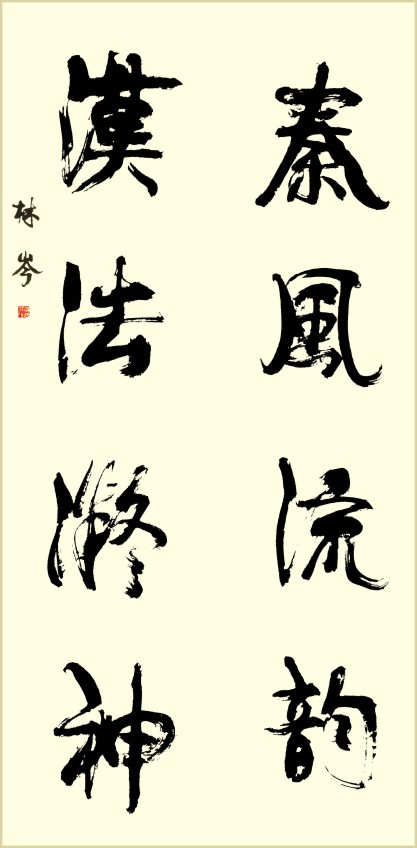 秦風流韵
漢法凝神
林岑